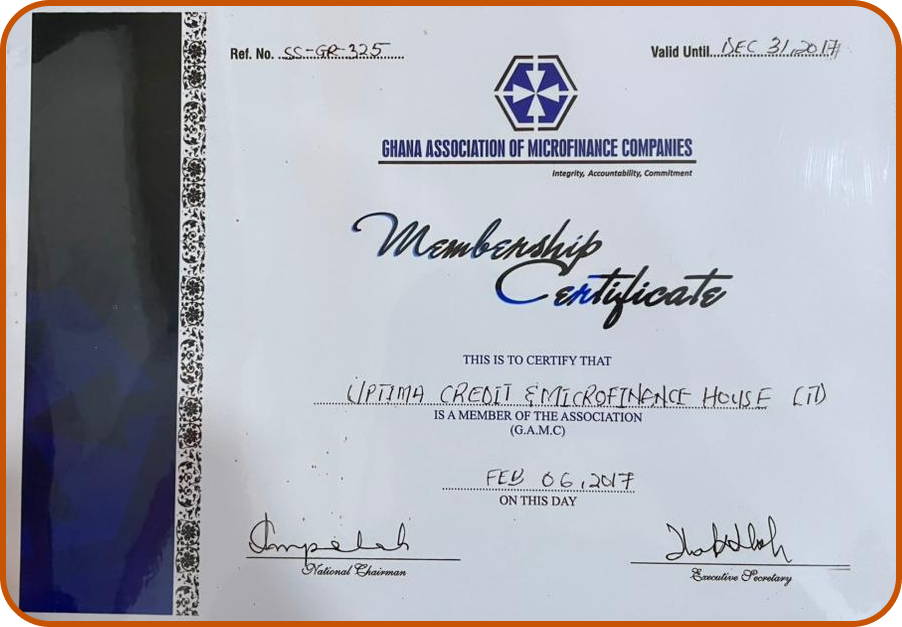 Ref. No. SS-GR-325
Valid Until. DEC 31, 2017
GHANA ASSOCIATION OF MICROFINANCE COMPANIES
Integrity, Accountability, Commitment
Membership
Certificate
THIS IS TO CERTIFY THAT
UPTIMA CREDIT & MICROFINANCE HOUSE LTD
IS A MEMBER OF THE ASSOCIATION
(G.A.M.C)
FEB 06, 2017
ON THIS DAY
National Chairman
Executive Secretary